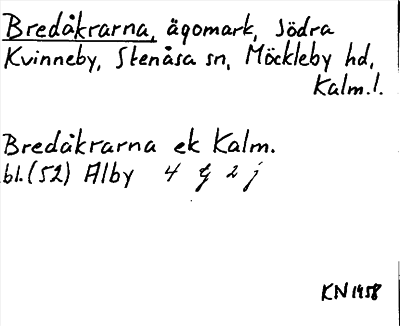 Bredåkrarna, ägomark, Södra
Kvinneby, Stenåsa sn, Möckleby hd,
Kalm.l.
Bredåkrarna ek Kalm.
bl.(52) Alby 4 G 2 j
KN 1958